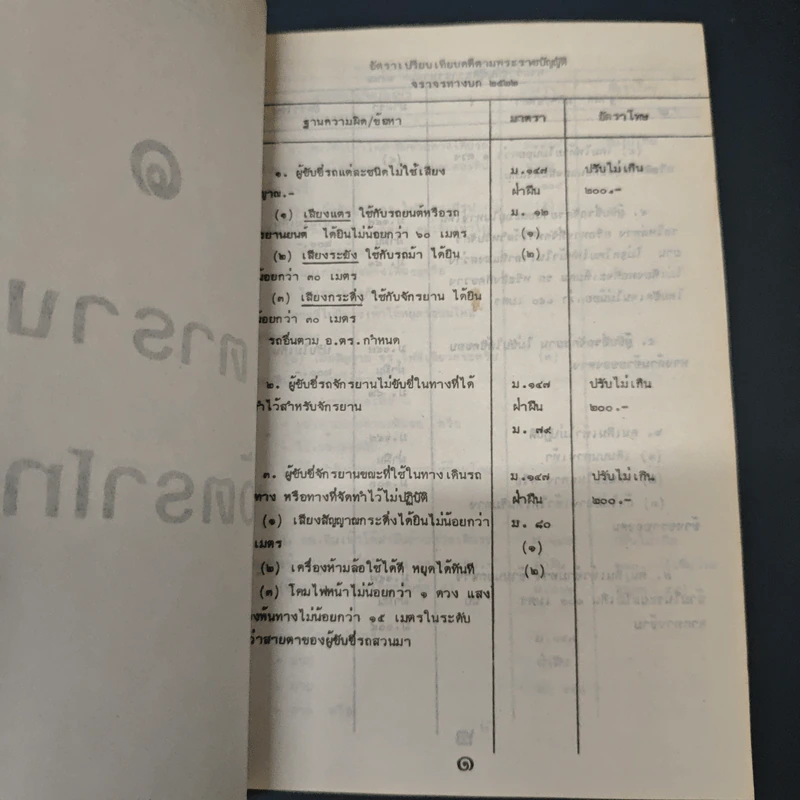 อัตราเปรียบเทียบคดีตามพระราชบัญญัติ
จราจรทางบก ๒๕๒๒
ฐานความผิด/ข้อหา มาตรา อัตราโทษ
๑. ผู้ขับขี่รถแต่ละชนิดไม่ใช้เสียง ม.๑๔๗ ปรับไม่เกิน
ญาณ.- ฝ่าฝืน ๒๐๐.-
(๑) เสียงแตร ใช้กับรถยนต์หรือรถ ม. ๑๒
ยานยนต์ ได้ยินไม่น้อยกว่า ๖๐ เมตร (๑)
(๒) เสียงระฆัง ใช้กับรถม้า ได้ยิน (๒)
น้อยกว่า ๓๐ เมตร
(๓) เสียงกระดิ่ง ใช้กับจักรยาน ได้ยิน
น้อยกว่า ๓๐ เมตร
รถอื่นตาม อ.ตร.กำหนด
๒. ผู้ขับขี่รถจักรยานไม่ขับขี่ในทางที่ได้ ม.๑๔๗ ปรับไม่เกิน
ทำไว้สำหรับจักรยาน ฝ่าฝืน ๒๐๐.-
ม. ๗๙
๓. ผู้ขับขี่จักรยานขณะที่ใช้ในทางเดินรถ ม.๑๔๗ ปรับไม่เกิน
ทาง หรือทางที่จัดทำไว้ไม่ปฏิบัติ ฝ่าฝืน ๒๐๐.-
(๑) เสียงสัญญาณกระดิ่งได้ยินไม่น้อยกว่า ม. ๘๐
เมตร (๑)
(๒) เครื่องห้ามล้อใช้ได้ดี หยุดได้ทันที (๒)
(๓) โคมไฟหน้าไม่น้อยกว่า ๑ ดวง แสง
พื้นทางไม่น้อยกว่า ๑๕ เมตรในระดับ
ว่าสายตาของผู้ขับขี่รถสวนมา
๑